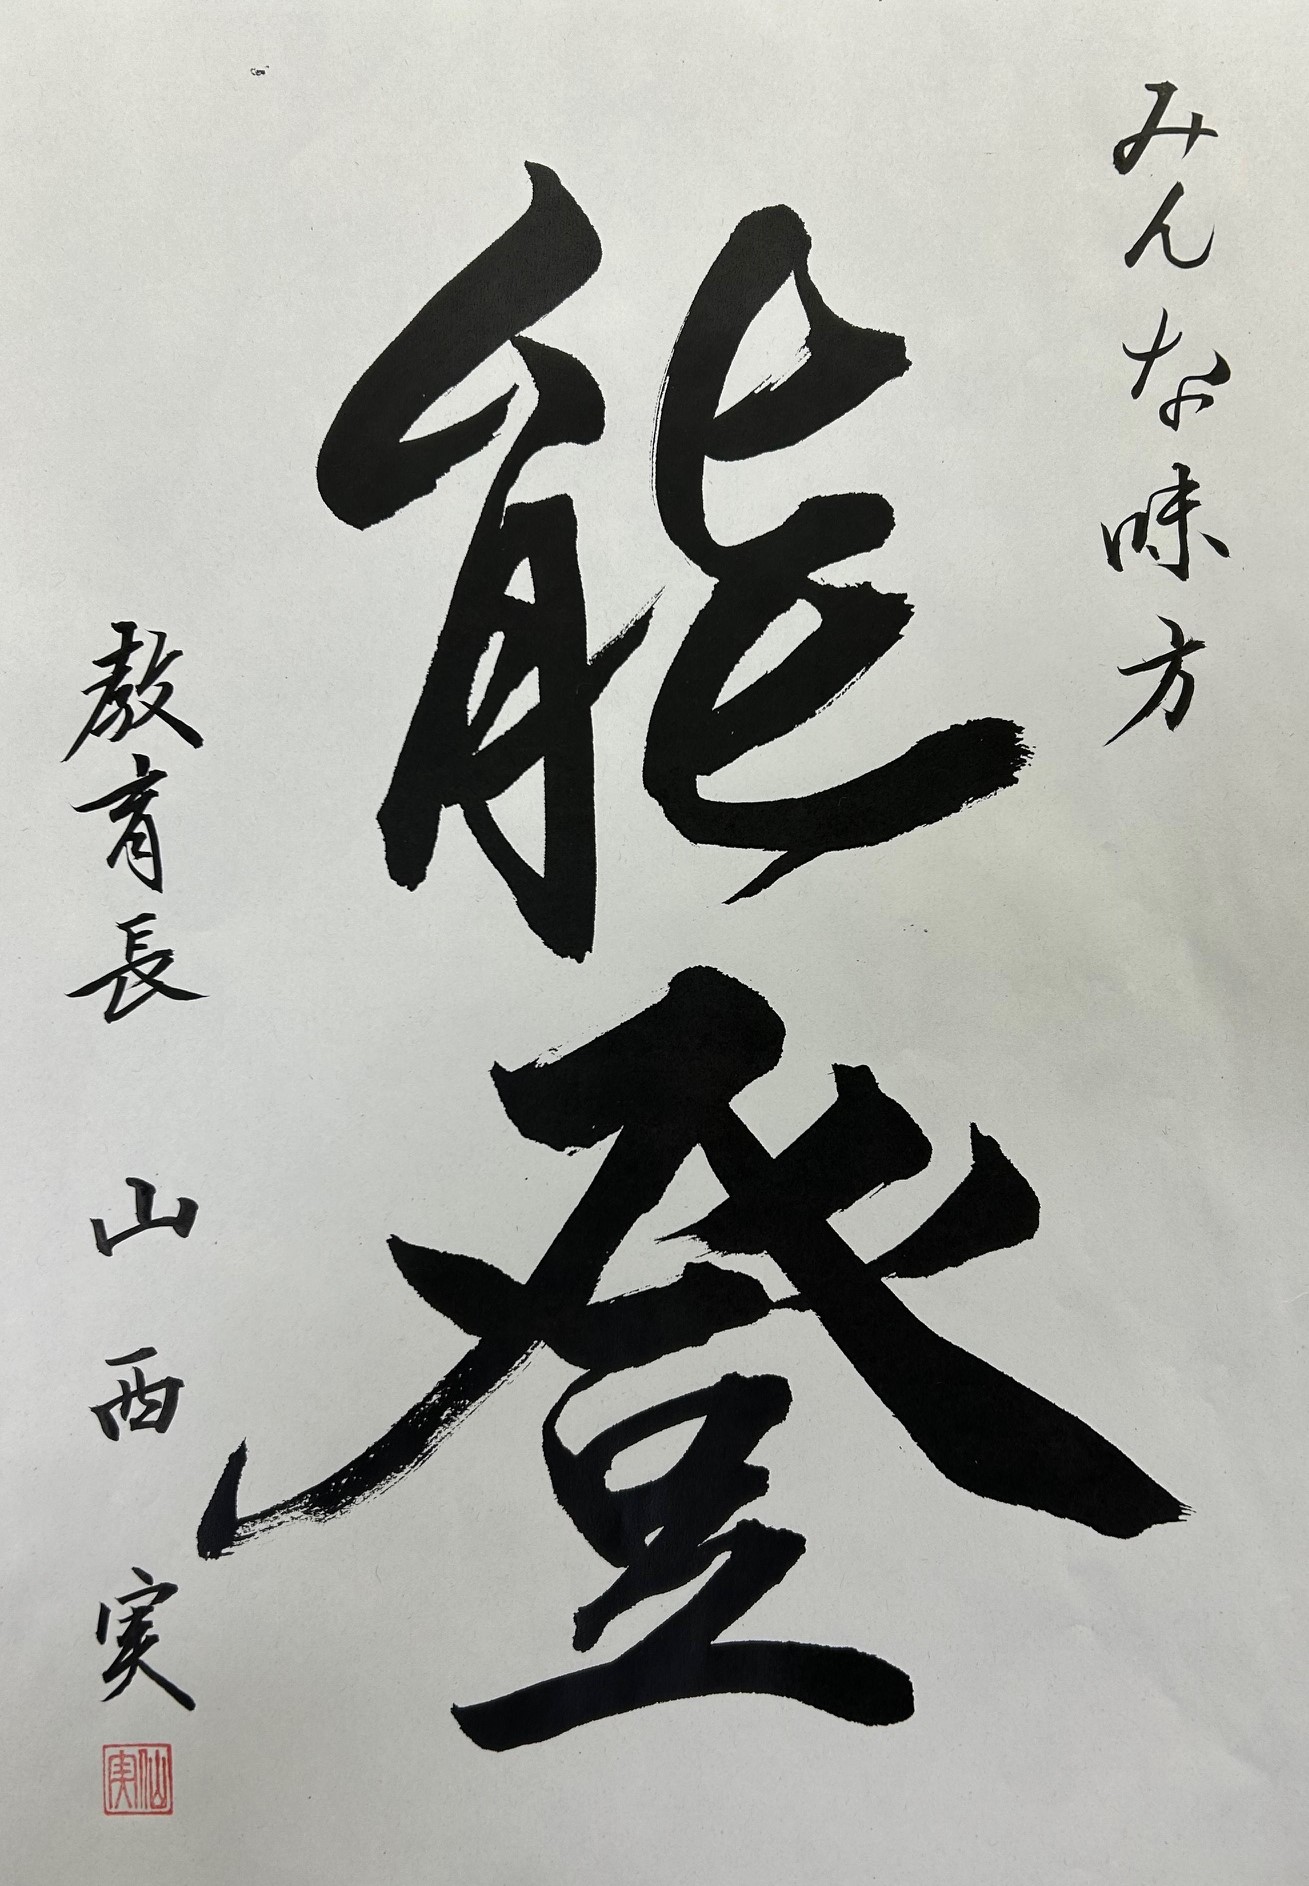 みんな味方
能登
教育長 山西実
仙実